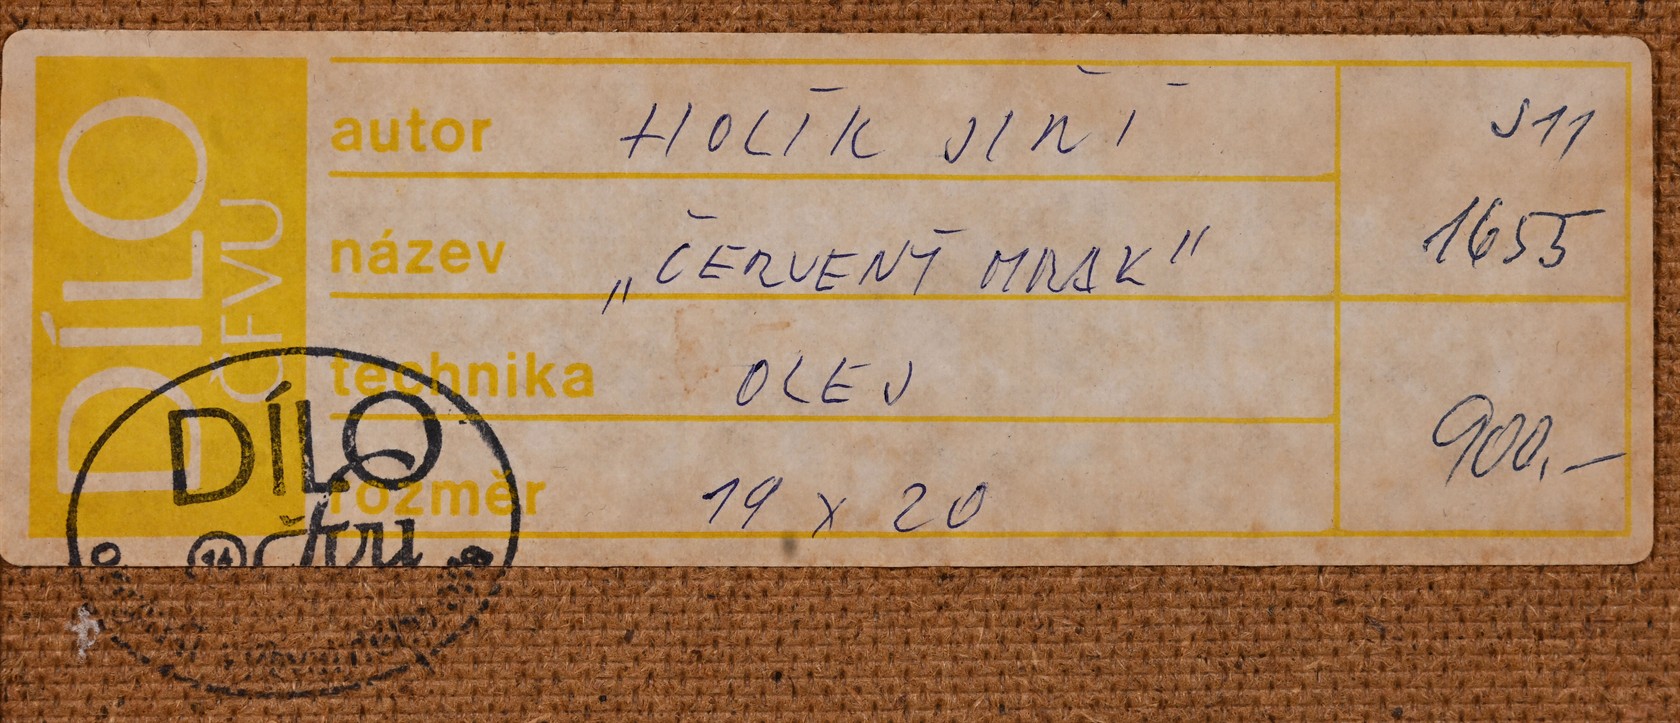 DÍLO
ČFVU
autor HOLÍK JIŘÍ
název „ČERVENÝ MRAK"
technika OLEJ
rozměr 19 x 20
J11
1655
900,-
DÍLO
14 čfvu